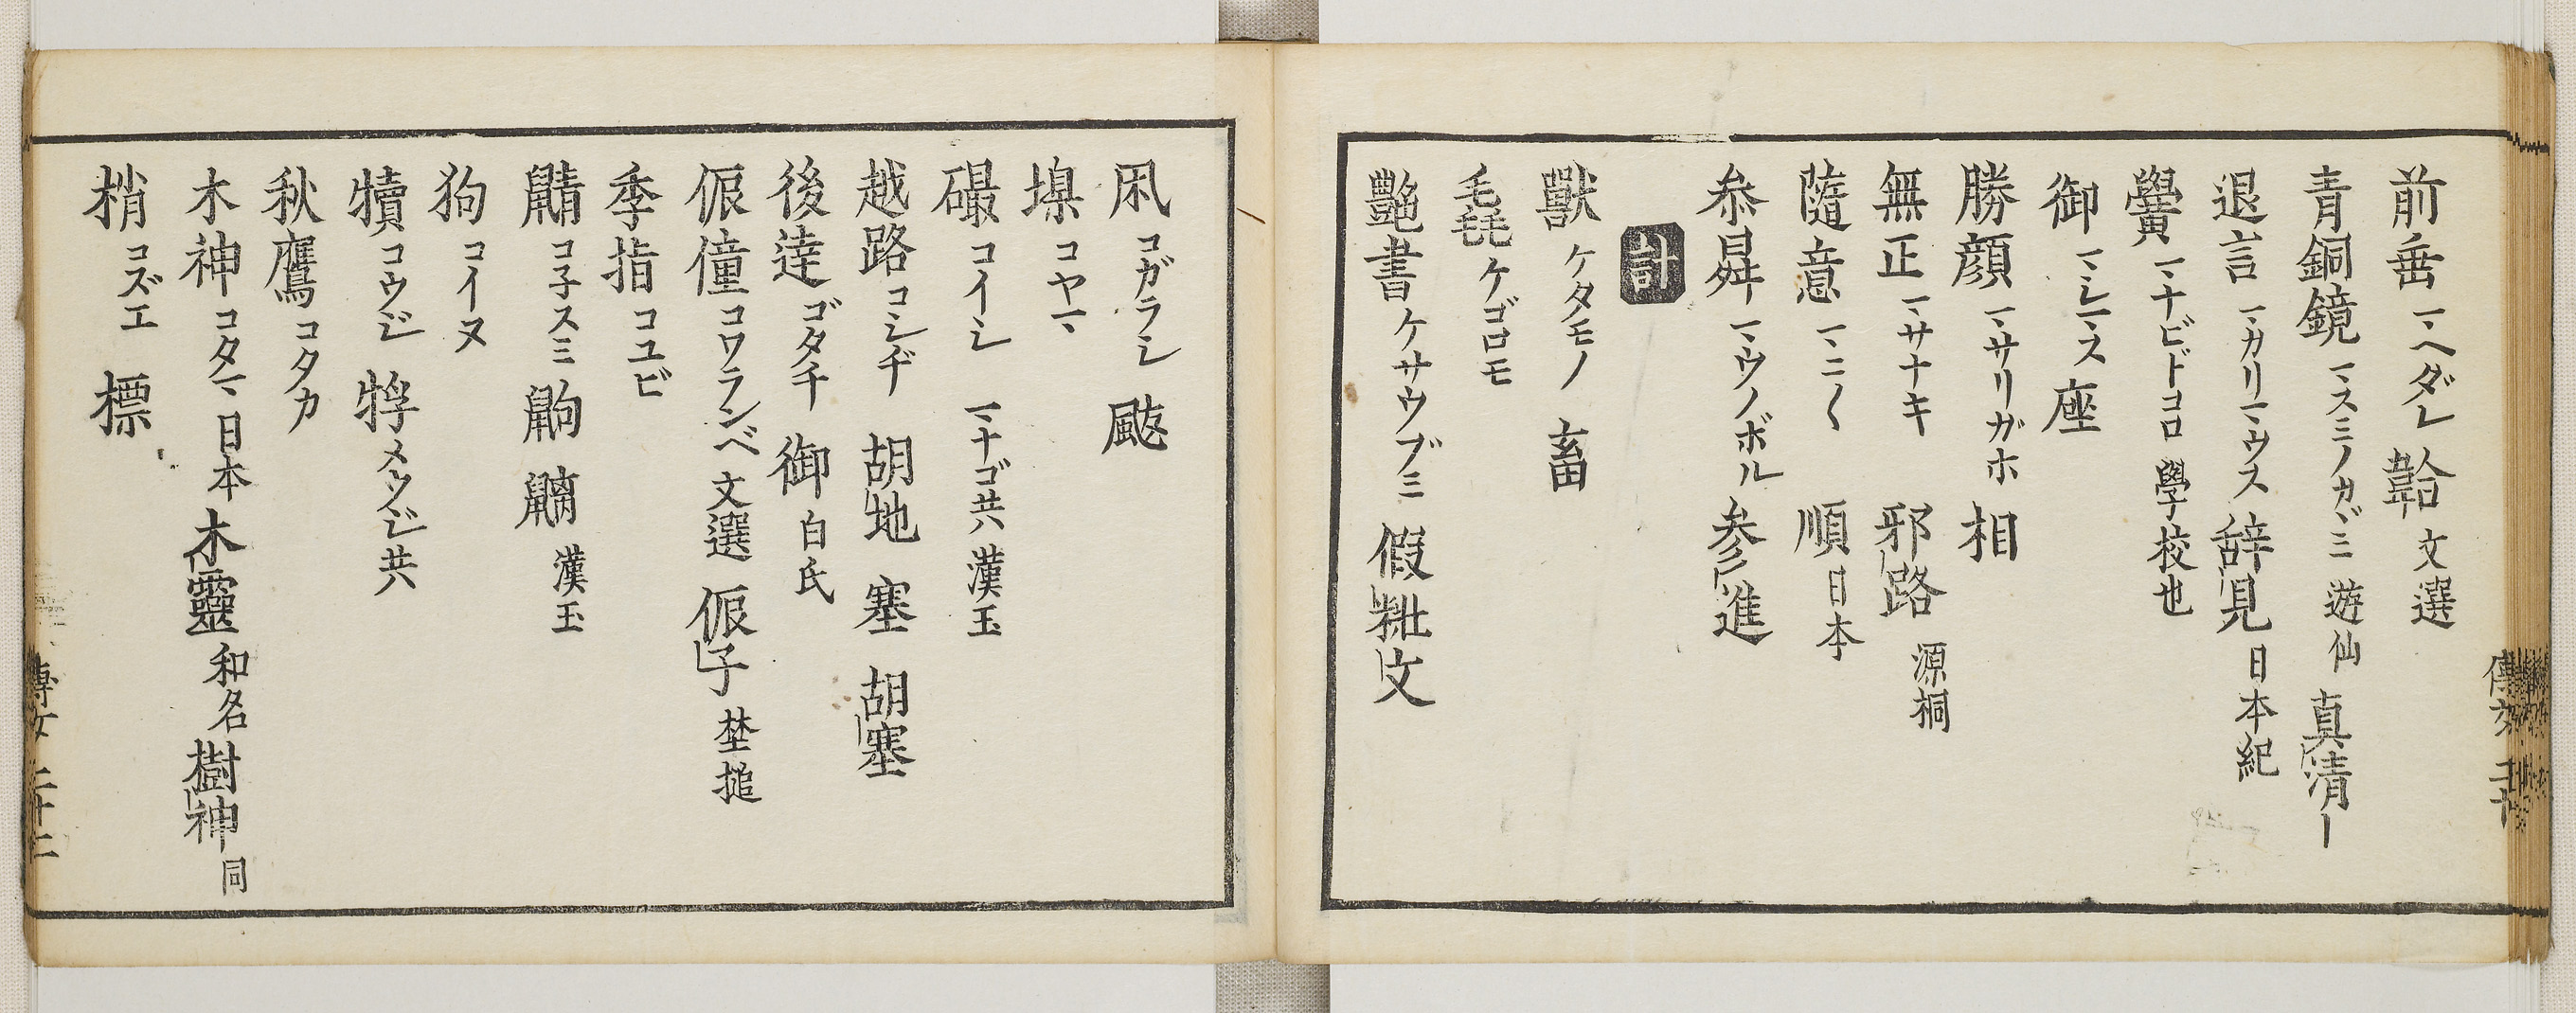 前垂マヘダレ 韐文選
青銅鏡マスミノカヾミ遊仙 真清ー
退言マカリマウス 辞見日本紀
黌マナビドコロ學校也
御マシマス 座
勝顔マサリガホ 相
無正マサナキ 邪路源桐
隨意マニ〱 順日本
叅舁マウノボル 参進
計
獸ケタモノ 畜
毛毳ケゴロモ
艷書ケサウブミ 假粃文
凩コガラシ 颰
塓コヤマ
礣コイシ マナゴ共漢玉
越路コシヂ 胡地 塞 胡塞
後達ゴタチ 御白氏
侲僮コワランベ文選 侲子埜搥
季指コユビ
鼱コ子スミ 鼩 漢玉
狗コイヌ
犢コウジ 牸メウジ共
秋鷹コタカ
木神コタマ日本 木靈和名 樹神同
梢コズエ 標